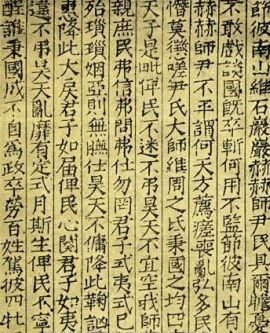 節彼南山維石巖巖赫赫師尹民具爾瞻憂
不敢戲談國既卒斬何用不監節彼南山有
赫赫師尹不平謂何天方薦瘥喪亂弘多民
憯莫懲嗟尹氏大師維周之氐秉國之均四
天子是毗俾民不迷不弔昊天不宜空我師
親庶民弗信弗問弗仕勿罔君子式夷式已
殆瑣瑣姻亞則無膴仕昊天不傭降此鞠訩
惠降此大戾君子如屆俾民心闋君子如夷
違不弔昊天亂靡有定式月斯生俾民不寧
酲誰秉國成不自為政卒勞百姓駕彼四牡